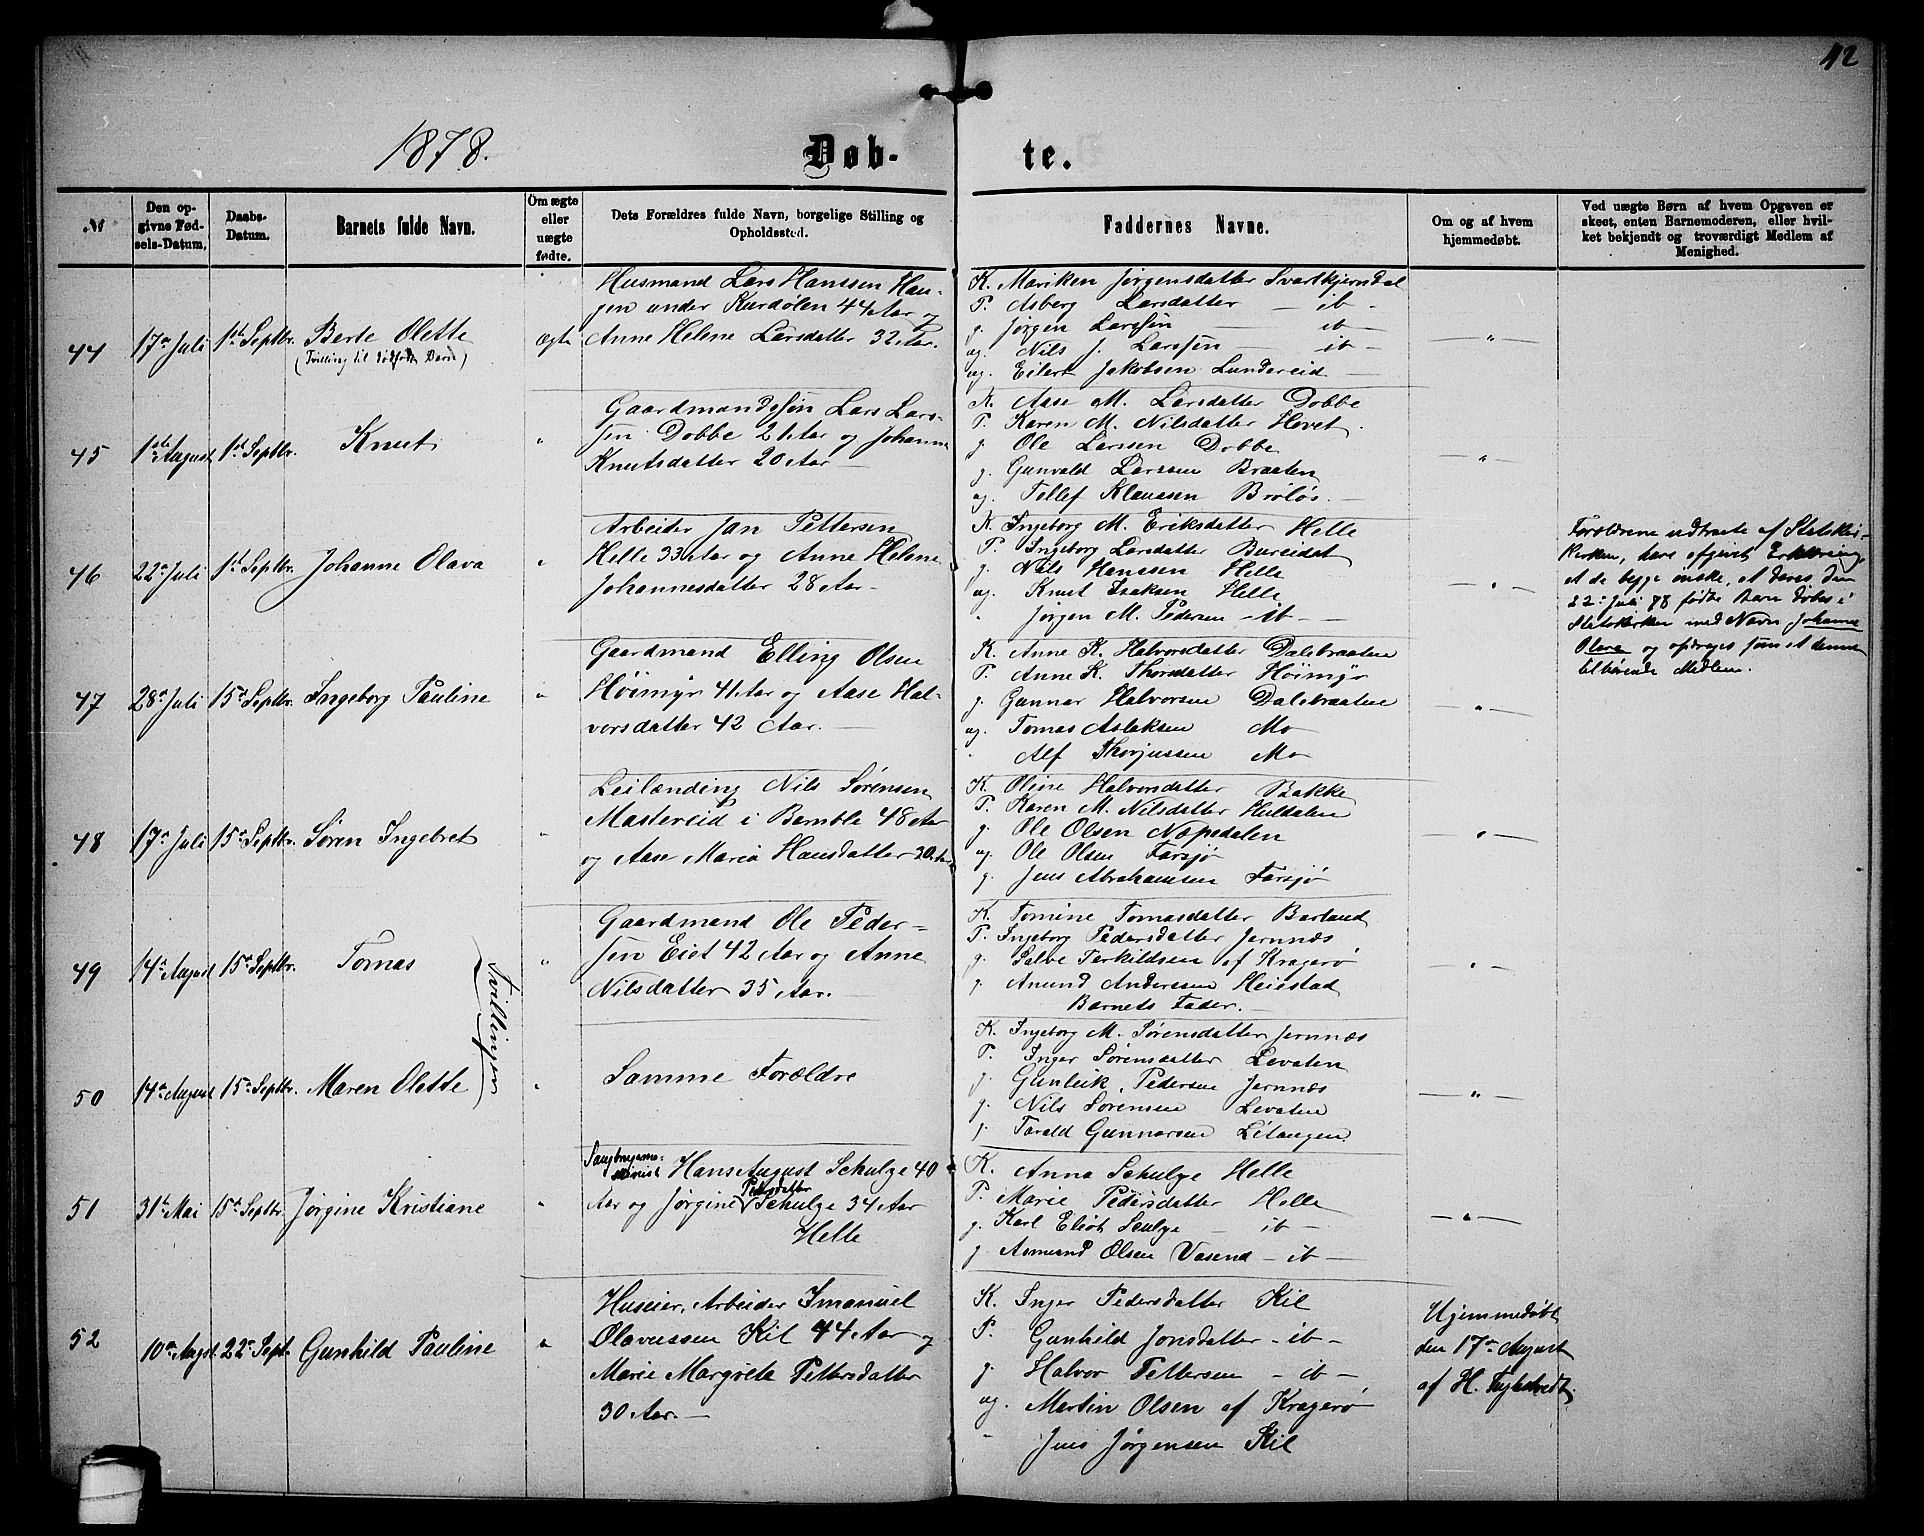 42
1878.
Døb-
te.
№
Den op-
givne Fød-
sels-Datum.
Daabs-
Datum.
Barnets fulde Navn.
Om ægte
eller
uægte
fødte.
Dets Forældres fulde Navn, borgelige Stilling og
Opholdssted.
Faddernes Navne.
Om og af hvem
hjemmedøbt.
Ved uægte Børn af hvem Opgaven er
skeet, enten Barnemoderen, eller hvil-
ket bekjendt og troværdigt Medlem af
Menighed.
44
17de Juli
1ste Septbr.
Berte Olette
(Tvilling til dødfødt Barn)
Ægte
Husmand Lars Hanssen Hau-
gen under Kurdølen 44 Aar og
Anne Helene Larsdatter 32 Aar.
K. Mariken Jørgensdatter Svartkjerndal
P. Asberg Larsdatter — ib —
g. Jørgen Larssen — ib —
ug. Nils J. Larssen — ib —
ug. Eilert Jakobsen Lundereid —
— " —
45
1ste August
1ste Septbr.
Knut
"
Gaardmandssøn Lars Lars-
sen Dobbe 21 Aar og Johanne
Knutsdatter 20 Aar —
K. Aase M. Larsdatter Dobbe
P. Karen M. Nilsdatter Hovet.
g. Ole Larssen Dobbe
g. Gunvald Larssen Braaten
ug. Tellef Klaussen Brøløs. —
— " —
46
22de Juli
1ste Septbr.
Johanne Olava
"
Arbeider Jan Pettersen
Helle 33 Aar og Anne Helene
Johannesdatter 28 Aar —
K. Ingeborg M. Eriksdatter Helle
P. Ingeborg Larsdatter Bureidet
g. Nils Hanssen Helle
ug. Knut Isaksen Helle
" Jørgen M. Pedersen — ib —
— " —
Forældrene udtraadte af Statskir-
kirken, have afgivet Erklæring
at de begge ønske, at deres den
22de Juli 78 fødte Barn døbes i
Statskirken med Navn Johanne
Olava og opdrages som et denne
tilhørende Medlem.
47
28de Juli
15de Septbr.
Ingeborg Pauline
"
Gaardmand Elling Olsen
Høimyr 41 Aar og Aase Hal-
vorsdatter 42 Aar. —
K. Anne K. Halvorsdatter Dalebraatene
P. Anne K. Thorsdatter Høimyr
g. Gunnar Halvorsen Dalebraatene
ug. Tomas Aslaksen Mo
" Alf Thorjussen Mo
— " —
48
17de Juli
15de Septbr.
Søren Ingebret
"
Leilænding Nils Sørensen
Mastereid i Bamble 48 Aar
og Aase Maria Hansdatter 30 Aar
K. Oline Halvorsdatter Bakke
P. Karen M. Nilsdatter Heldalen
g. Ole Olsen Næpedalen
ug. Ole Olsen Farsjø
g. Jens Abrahamsen Farsjø
— " —
49
14de August
15de Septbr.
Tomas
Tvillinger
"
Gaardmand Ole Peder-
sen Eiet 42 Aar og Anne
Nilsdatter 35 Aar. —
K. Tomine Tomasdatter Barland
P. Ingeborg Pedersdatter Jernnæs
g. Salve Terkildsen af Kragerø
g. Amund Anderssen Heiestad
Barnets Fader. —
— " —
50
14de August
15de Septbr.
Maren Olette
"
Samme Forældre
K. Ingeborg M. Sørensdatter Jernnæs
P. Inger Sørensdatter Levaten
g. Gunleik Pedersen Jernnæs
g. Nils Sørensen Levaten
g. Tarald Gunnarsen Litangen
— " —
51
31te Mai
15de Septbr.
Jørgine Kristiane
"
Hans August Schulze 40
Aar og Jørgine Pedersdatter Schulze 34 Aar
Helle
K. Anna Schulze Helle
P. Marie Pedersdatter Helle
g. Karl Eliøt Schulze — ib —
g. Asmund Olsen Vasend — ib —
— " —
52
10de Augst.
22de Sept.
Gunhild Pauline
"
Huseier, Arbeider Imanuel
Olavessen Kil 44 Aar og
Marie Margrete Pettersdatter
30 Aar. —
K. Inger Pedersdatter Kil
P. Gunhild Jonsdatter — ib —
g. Halvor Pettersen — ib —
ug. Martin Olsen af Kragerø
" Jens Jørgensen Kil
Hjemmedøbt
den 17de August
af H.